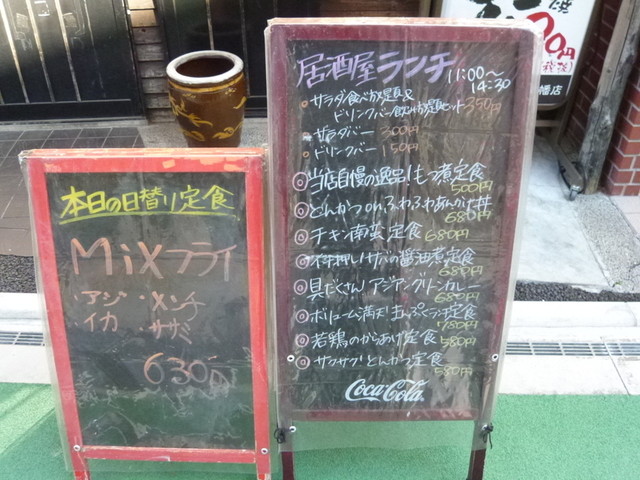 本日の日替り定食
Mixフライ
・アジ ・メンチ
・イカ ・ササミ
630-
居酒屋ランチ
11:00〜
14:30
サラダ食べ放題&
ドリンクバー飲み放題セット 350円
サラダバー 300円
ドリンクバー 150円
◎当店自慢の逸品!もつ煮定食
500円
◎とんかつonふわふわあんかけ丼
680円
◎チキン南蛮定食 680円
◎イチ押し!サバの醤油煮定食
680円
◎具だくさん!アジアングリーンカレー
680円
◎ボリューム満天!まんぷくランチ定食
780円
◎若鶏のからあげ定食 580円
◎サクサク!とんかつ定食
580円
Coca-Cola